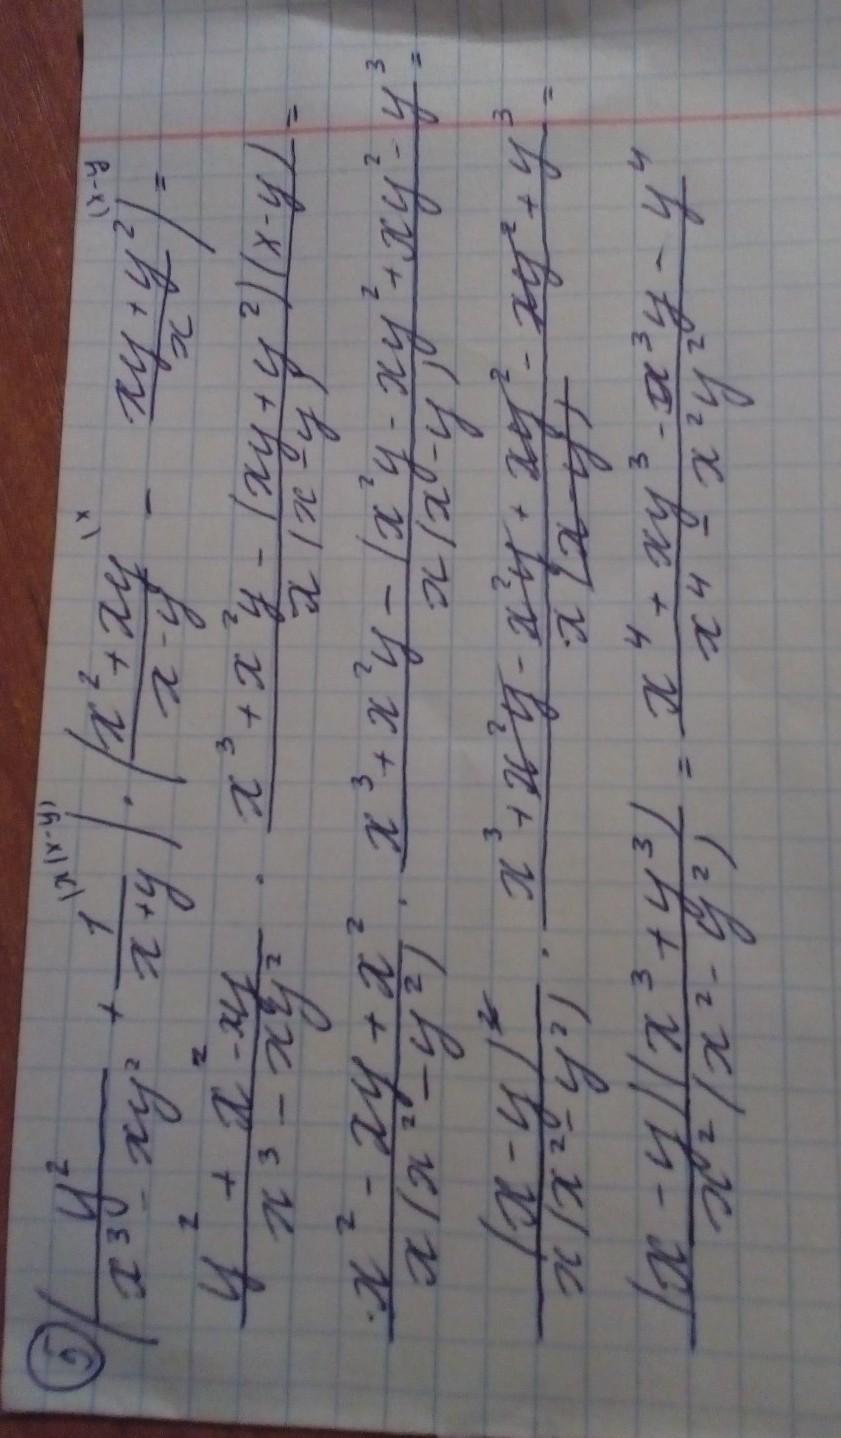 ⑤ (y²/(x³ - xy²) + 1/(x+y) \x(x-y)) · ((x² + xy)/(x-y) \x - (xy + y²)/x \(x-y)) =
(y² + x² - xy)/(x³ - xy²) · (x³ + x²y - (xy + y²)(x-y))/(x(x-y)) =
(x² - xy + x²)/(x(x² - y²)) · (x³ + x²y - (x²y - xy² + xy² - y³))/(x(x-y)) =
(x - y)²/(x(x² - y²)) · (x³ + x²y - x²y + xy² - xy² + y³)/(x(x-y)) =
(x - y)(x³ + y³)/(x²(x² - y²)) = (x⁴ + xy³ - x³y - y⁴)/(x⁴ - x²y²)